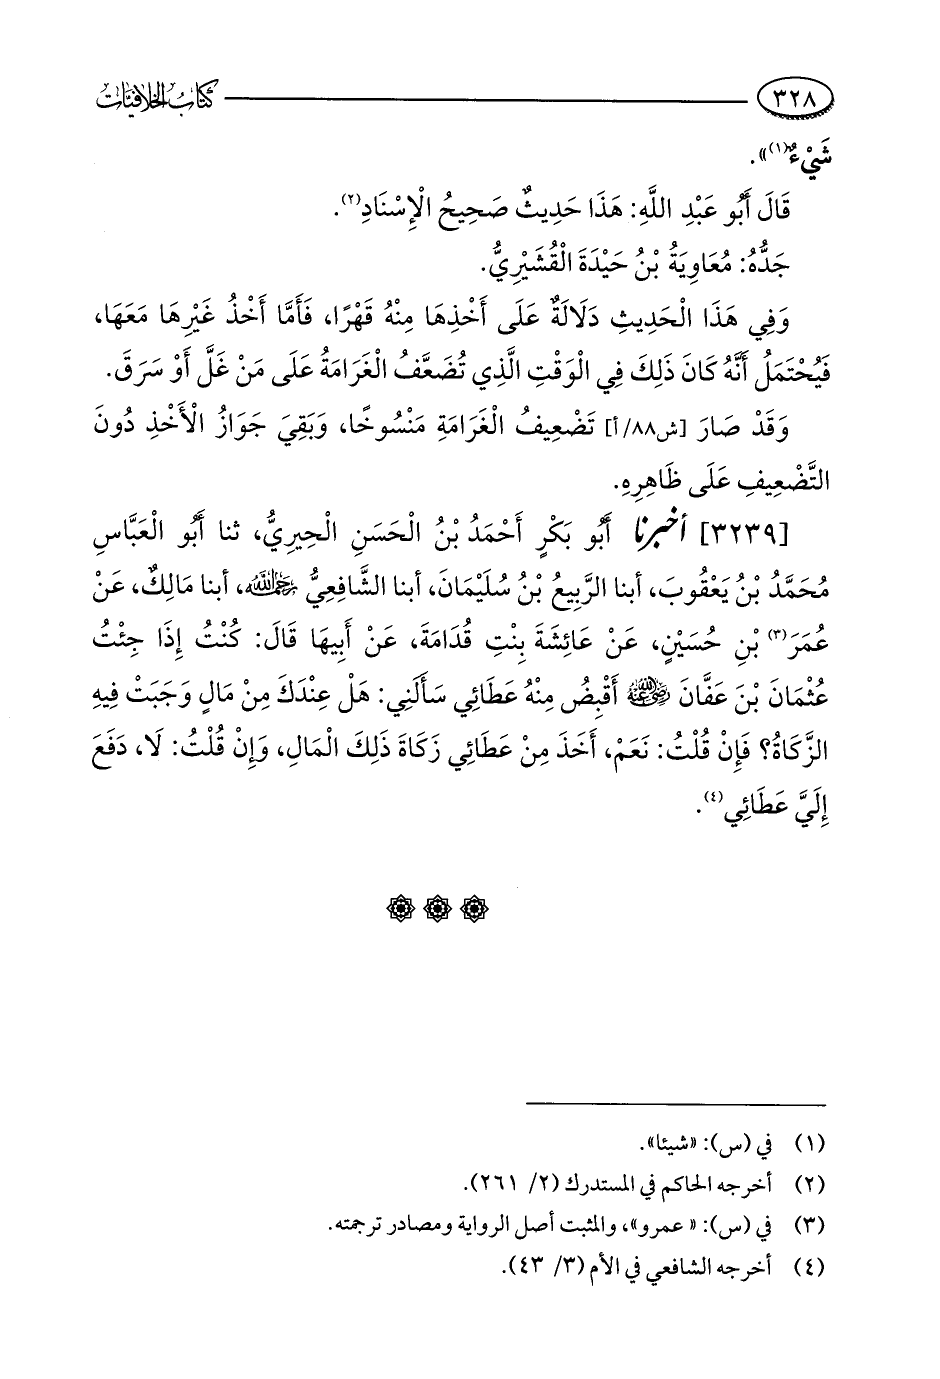 ٣٢٨ كتاب الخلافيات
شَيْءٌ(١)».
قَالَ أَبُو عَبْدِ اللَّهِ: هَذَا حَدِيثٌ صَحِيحُ الْإِسْنَادِ(٢).
جَدُّهُ: مُعَاوِيَةُ بْنُ حَيْدَةَ الْقُشَيْرِيُّ.
وَفِي هَذَا الْحَدِيثِ دَلَالَةٌ عَلَى أَخْذِهَا مِنْهُ قَهْرًا، فَأَمَّا أَخْذُ غَيْرِهَا مَعَهَا،
فَيُحْتَمَلُ أَنَّهُ كَانَ ذَلِكَ فِي الْوَقْتِ الَّذِي تُضَعَّفُ الْغَرَامَةُ عَلَى مَنْ غَلَّ أَوْ سَرَقَ.
وَقَدْ صَارَ [ش٨٨/أ] تَضْعِيفُ الْغَرَامَةِ مَنْسُوخًا، وَبَقِيَ جَوَازُ الْأَخْذِ دُونَ
التَّضْعِيفِ عَلَى ظَاهِرِهِ.
[٣٢٣٩] أخبرنا أَبُو بَكْرٍ أَحْمَدُ بْنُ الْحَسَنِ الْحِيرِيُّ، ثنا أَبُو الْعَبَّاسِ
مُحَمَّدُ بْنُ يَعْقُوبَ، أبنا الرَّبِيعُ بْنُ سُلَيْمَانَ، أبنا الشَّافِعِيُّ رحمه الله، أبنا مَالِكٌ، عَنْ
عُمَرَ(٣) بْنِ حُسَيْنٍ، عَنْ عَائِشَةَ بِنْتِ قُدَامَةَ، عَنْ أَبِيهَا قَالَ: كُنْتُ إِذَا جِئْتُ
عُثْمَانَ بْنَ عَفَّانَ رضي الله عنه أَقْبِضُ مِنْهُ عَطَائِي سَأَلَنِي: هَلْ عِنْدَكَ مِنْ مَالٍ وَجَبَتْ فِيهِ
الزَّكَاةُ؟ فَإِنْ قُلْتُ: نَعَمْ، أَخَذَ مِنْ عَطَائِي زَكَاةَ ذَلِكَ الْمَالِ، وَإِنْ قُلْتُ: لَا، دَفَعَ
إِلَيَّ عَطَائِي(٤).
(١) في (س): «شيئا».
(٢) أخرجه الحاكم في المستدرك (٢/ ٢٦١).
(٣) في (س): «عمرو»، والمثبت أصل الرواية ومصادر ترجمته.
(٤) أخرجه الشافعي في الأم (٣/ ٤٣).